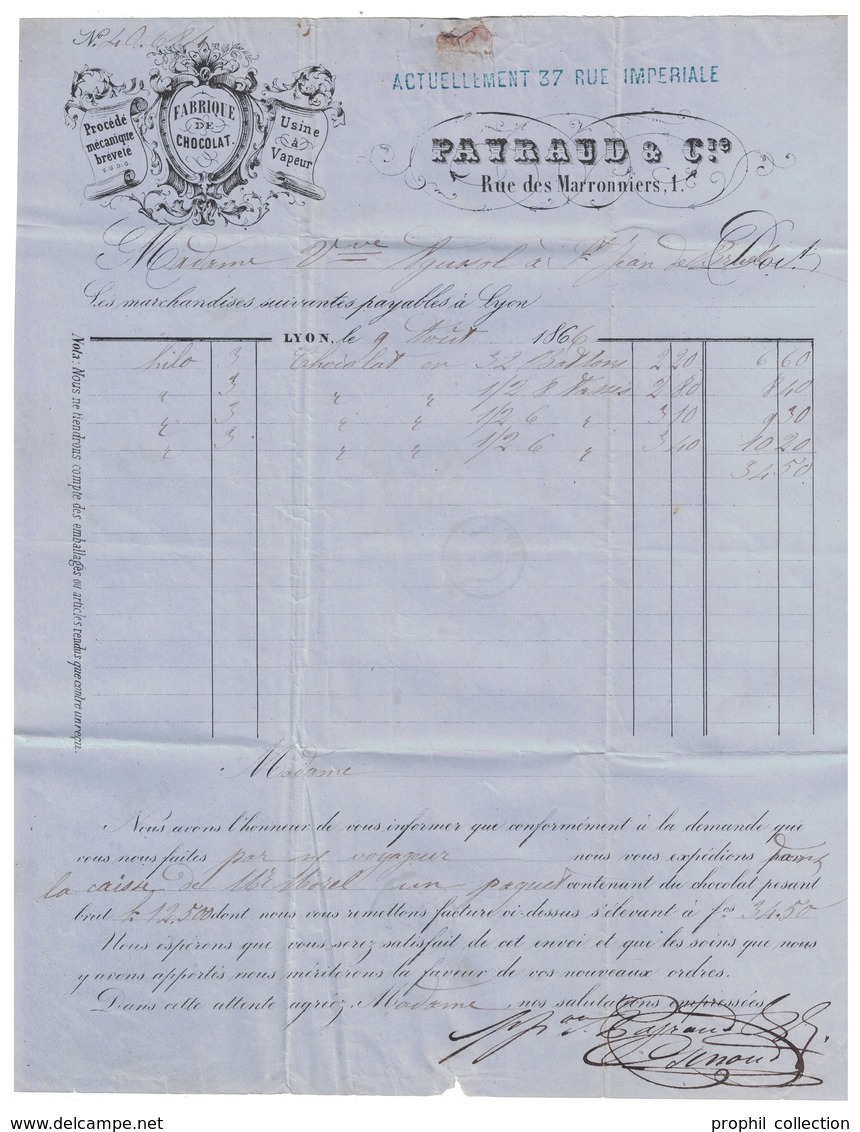 No 40.684
ACTUELLEMENT 37 RUE IMPERIALE
Procédé mécanique breveté S.G.D.G.
FABRIQUE DE CHOCOLAT.
Usine à Vapeur
PAYRAUD & Cie
Rue des Marronniers, 1.
Madame Vve à St Jean de Doit
Les marchandises suivantes payables à Lyon
LYON, le 9 Août 1866
kilo 3 Chocolat en 32 Batons 2 20 6 60
" 3 " " 1/2 8 Tasses 2 80 8 40
" 3 " " 1/2 6 " 3 10 9 30
" 3 " " 1/2 6 " 3 40 10 20
34 50
Nota: Nous ne tiendrons compte des emballages ou articles rendus que contre un reçu.
Madame
Nous avons l'honneur de vous informer que conformément à la demande que
vous nous faites par voyageur nous vous expédions
la caisse de Mr Morel un paquet contenant du chocolat pesant
brut k. 12.500 dont nous vous remettons facture ci-dessus s'élevant à fcs 34.50
Nous espérons que vous serez satisfait de cet envoi et que les soins que nous
y avons apportés nous mériterons la faveur de vos nouveaux ordres.
Dans cette attente agréez Madame nos salutations empressées.
Payraud
prophil collection